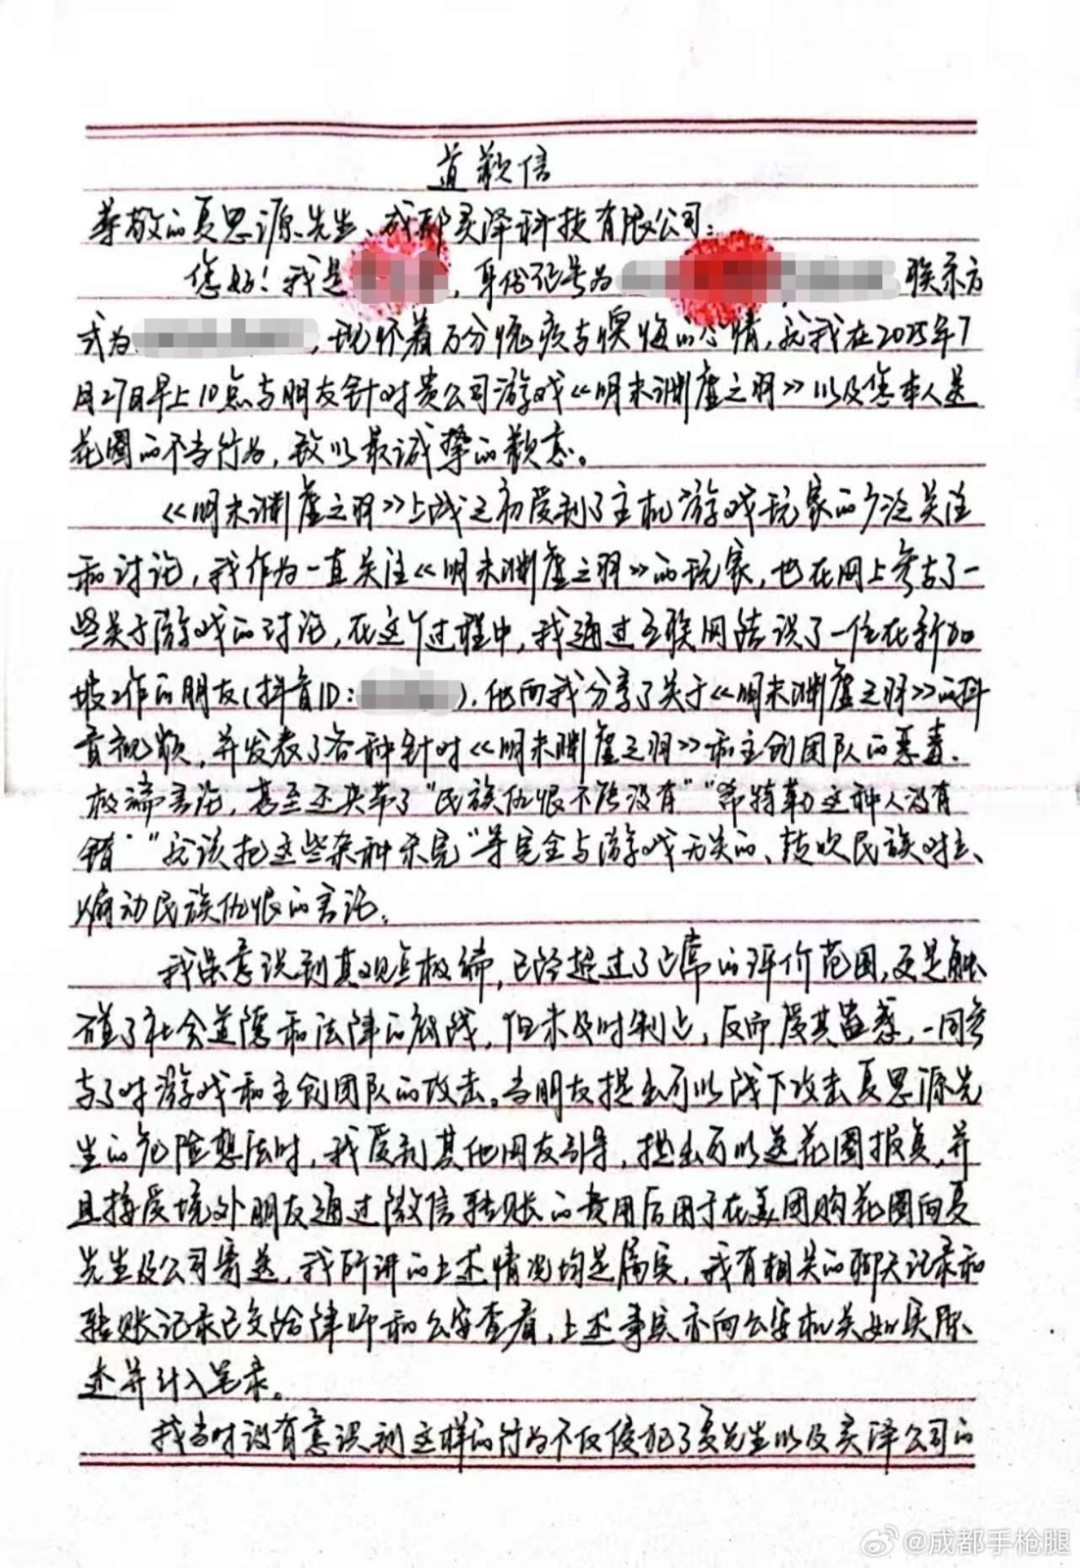 道歉信
尊敬的夏思源先生、成都灵泽科技有限公司:
您好!我是,身份证号为 联系方
式为,现怀着万分愧疚与懊悔的心情,就我在2025年7
月27日早上10点与朋友针对贵公司游戏《明末渊虚之羽》以及您本人送
花圈的不当行为,致以最诚挚的歉意。
《明末渊虚之羽》上线之初受到了主机游戏玩家的广泛关注
和讨论,我作为一直关注《明末渊虚之羽》的玩家,也在网上参与了一
些关于游戏的讨论,在这个过程中,我通过互联网结识了一位在新加
坡工作的朋友(抖音ID:),他向我分享了关于《明末渊虚之羽》的抖
音视频,并发表了各种针对《明末渊虚之羽》和主创团队的恶毒、
极端言论,甚至还夹带了“民族仇恨不能没有”“希特勒这种人没有
错”“就该把这些杂种杀完”等完全与游戏无关的、鼓吹民族对立、
煽动民族仇恨的言论。
我虽意识到其观点极端,已经超过了正常的评价范围,更是触
碰了社会道德和法律的底线,但未及时制止,反而受其蛊惑,一同参
与了对游戏和主创团队的攻击。当朋友提出可以线下攻击夏思源先
生的危险想法时,我受到其他网友引导,提出可以送花圈报复,并
且接受境外朋友通过微信转账的费用后用于在美团购花圈向夏
先生及公司寄送,我所讲的上述情况均是属实,我有相关的聊天记录和
转账记录已交给律师和公安查看,上述事实亦向公安机关如实陈
述并计入笔录。
我当时没有意识到这样的行为不仅侵犯了夏先生以及灵泽公司的
@成都手枪腿